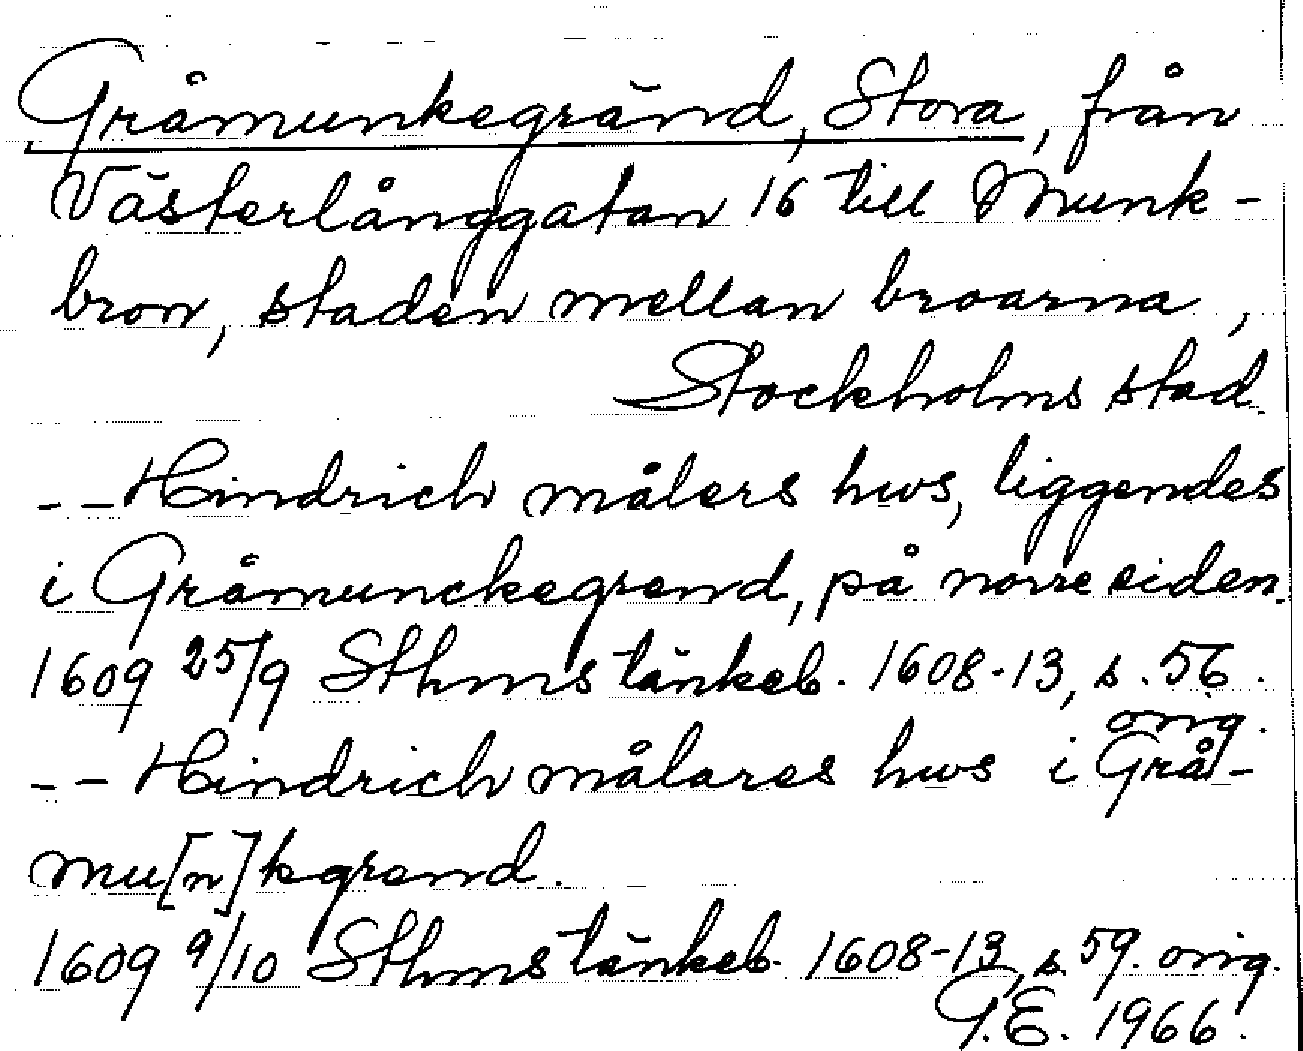 Gråmunkegränd, Stora, från
Västerlånggatan 16 till Munk-
bron, staden mellan broarna,
Stockholms stad.
-- Hindrich målers hws, liggendes
i Gråmunckegrend, på norre siden.
1609 25/9 Sthms tänkeb. 1608-13, s. 56.
orig.
-- Hindrich målares hws i Grå-
mu[n]kgrend.
1609 9/10 Sthms tänkeb. 1608-13, s. 59. orig.
G.E. 1966.